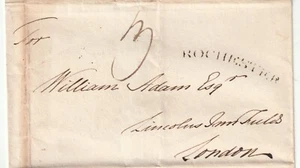 For
3
ROCHESTER
William Adam Esqr
Lincolns Inn Fields
London